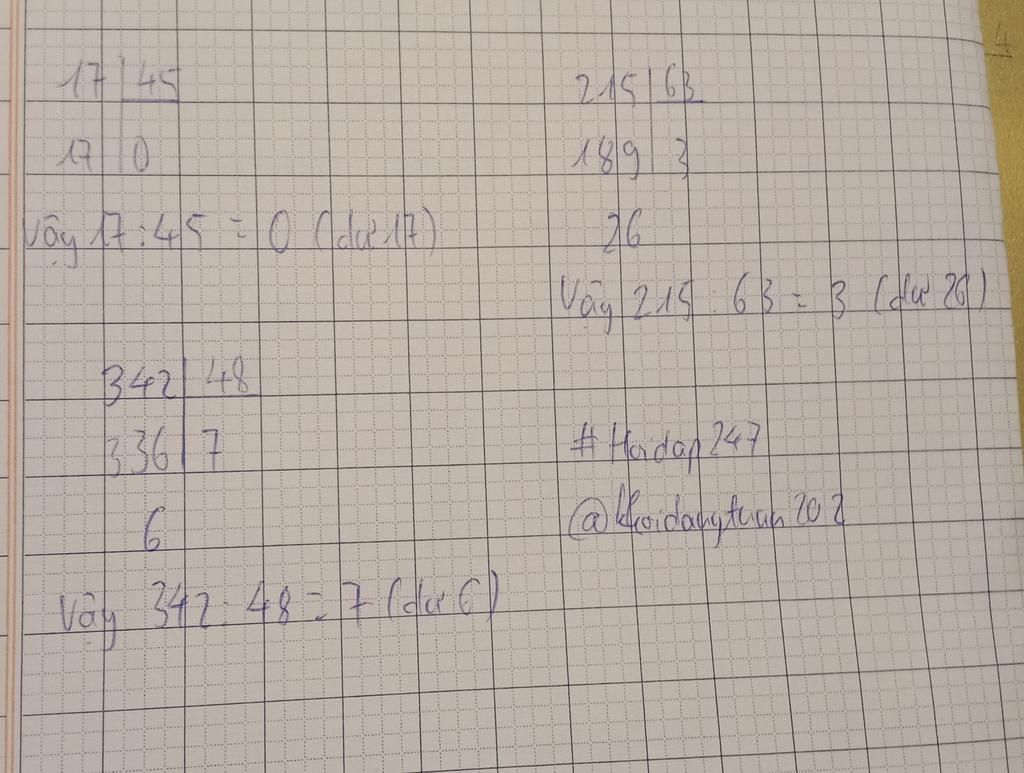 17 | 45
17 | 0
Vậy 17 : 45 = 0 (dư 17)
215 | 63
189 | 3
26
Vậy 215 : 63 = 3 (dư 26)
342 | 48
336 | 7
6
Vậy 342 : 48 = 7 (dư 6)
# Hoidap 247
@khoidangtuan202
4